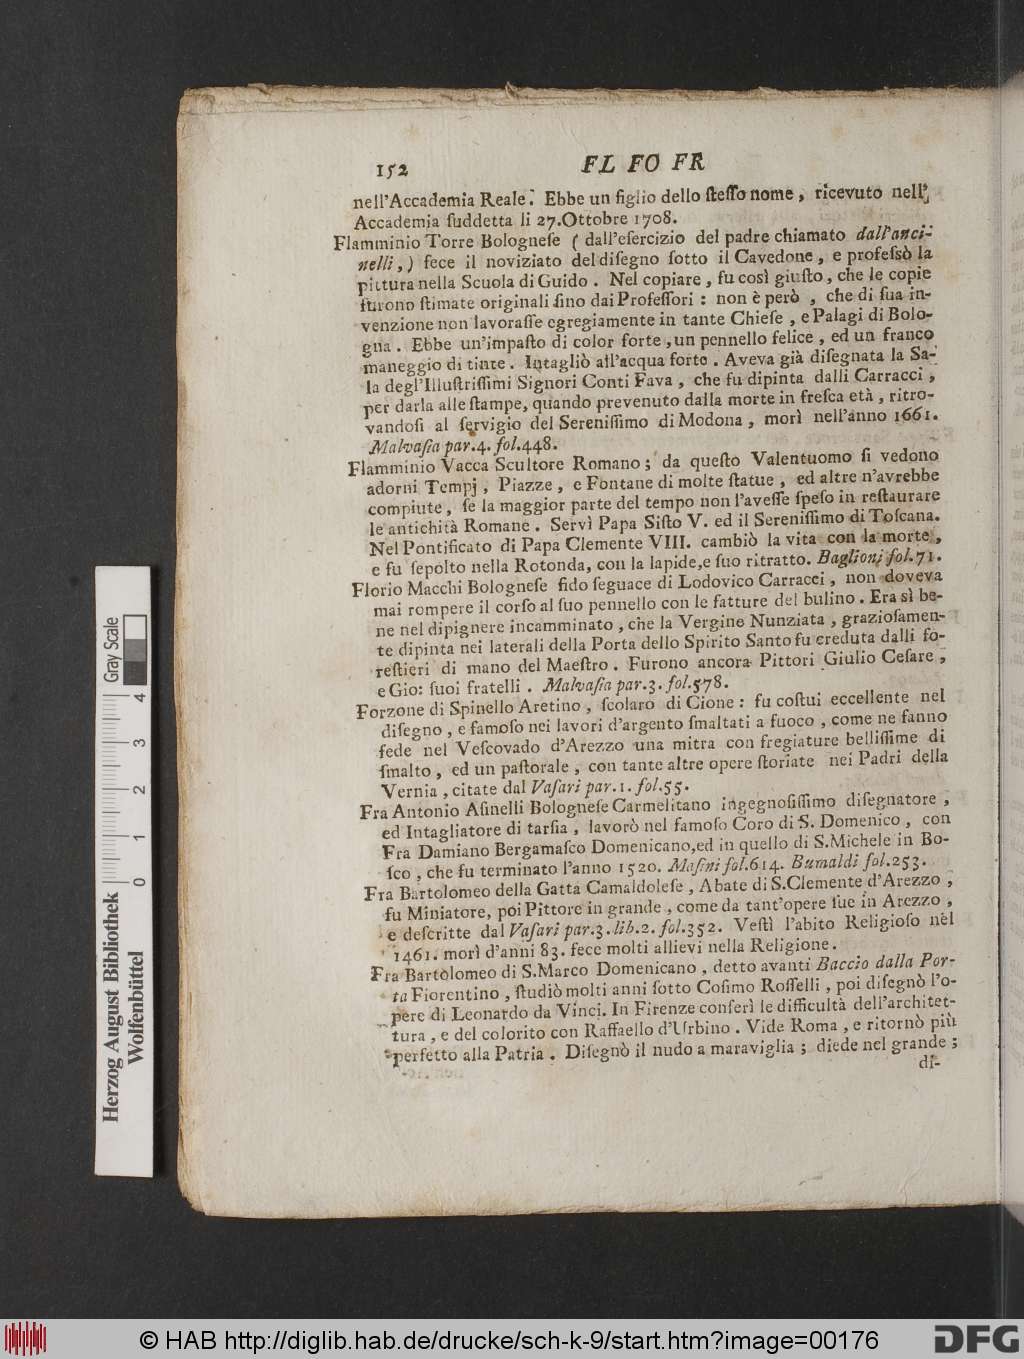 152 FL FO FR
nell'Accademia Reale. Ebbe un figlio dello ſteſſo nome, ricevuto nell'
Accademia ſuddetta li 27.Ottobre 1708.
Flamminio Torre Bologneſe ( dall'eſercizio del padre chiamato dall'anci-
nelli, ) fece il noviziato del diſegno ſotto il Cavedone, e profeſsò la
pittura nella Scuola di Guido. Nel copiare, fu così giuſto, che le copie
furono ſtimate originali ſino dai Profeſſori: non è però, che di ſua in-
venzione non lavoraſſe egregiamente in tante Chieſe, e Palagi di Bolo-
gna. Ebbe un'impaſto di color forte, un pennello felice, ed un franco
maneggio di tinte. Intagliò all'acqua forte. Aveva già diſegnata la Sa-
la degl'Illuſtriſſimi Signori Conti Fava, che fu dipinta dalli Carracci,
per darla alle ſtampe, quando prevenuto dalla morte in freſca età, ritro-
vandoſi al ſervigio del Sereniſſimo di Modona, morì nell'anno 1661.
Malvaſia par.4. fol.448.
Flamminio Vacca Scultore Romano; da queſto Valentuomo ſi vedono
adorni Tempj, Piazze, e Fontane di molte ſtatue, ed altre n'avrebbe
compiute, ſe la maggior parte del tempo non l'aveſſe ſpeſo in reſtaurare
le antichità Romane. Servì Papa Siſto V. ed il Sereniſſimo di Toſcana.
Nel Pontificato di Papa Clemente VIII. cambiò la vita con la morte,
e fu ſepolto nella Rotonda, con la lapide,e ſuo ritratto. Baglioni fol.71.
Florio Macchi Bologneſe fido ſeguace di Lodovico Carracci, non doveva
mai rompere il corſo al ſuo pennello con le fatture del bulino. Era sì be-
ne nel dipignere incamminato, che la Vergine Nunziata, grazioſamen-
te dipinta nei laterali della Porta dello Spirito Santo fu creduta dalli fo-
reſtieri di mano del Maeſtro. Furono ancora Pittori Giulio Ceſare,
e Gio: ſuoi fratelli. Malvaſia par.3. fol.578.
Forzone di Spinello Aretino, ſcolaro di Cione: fu coſtui eccellente nel
diſegno, e famoſo nei lavori d'argento ſmaltati a fuoco, come ne fanno
fede nel Veſcovado d'Arezzo una mitra con fregiature belliſſime di
ſmalto, ed un paſtorale, con tante altre opere ſtoriate nei Padri della
Vernia, citate dal Vaſari par.1. fol.55.
Fra Antonio Aſinelli Bologneſe Carmelitano ingegnoſiſſimo diſegnatore,
ed Intagliatore di tarſia, lavorò nel famoſo Coro di S. Domenico, con
Fra Damiano Bergamaſco Domenicano,ed in quello di S.Michele in Bo-
ſco, che fu terminato l'anno 1520. Maſini fol.614. Bumaldi fol.253.
Fra Bartolomeo della Gatta Camaldoleſe, Abate di S.Clemente d'Arezzo,
fu Miniatore, poi Pittore in grande, come da tant'opere ſue in Arezzo,
e deſcritte dal Vaſari par.3. lib.2. fol.352. Veſtì l'abito Religioſo nel
1461. morì d'anni 83. fece molti allievi nella Religione.
Fra Bartolomeo di S.Marco Domenicano, detto avanti Baccio dalla Por-
ta Fiorentino, ſtudiò molti anni ſotto Coſimo Roſſelli, poi diſegnò l'o-
pere di Leonardo da Vinci. In Firenze conferì le difficultà dell'architet-
tura, e del colorito con Raffaello d'Urbino. Vide Roma, e ritornò più
perfetto alla Patria. Diſegnò il nudo a maraviglia; diede nel grande;
di-
Herzog August Bibliothek
Wolfenbüttel
0 1 2 3 4
Gray Scale
© HAB http://diglib.hab.de/drucke/sch-k-9/start.htm?image=00176
DFG